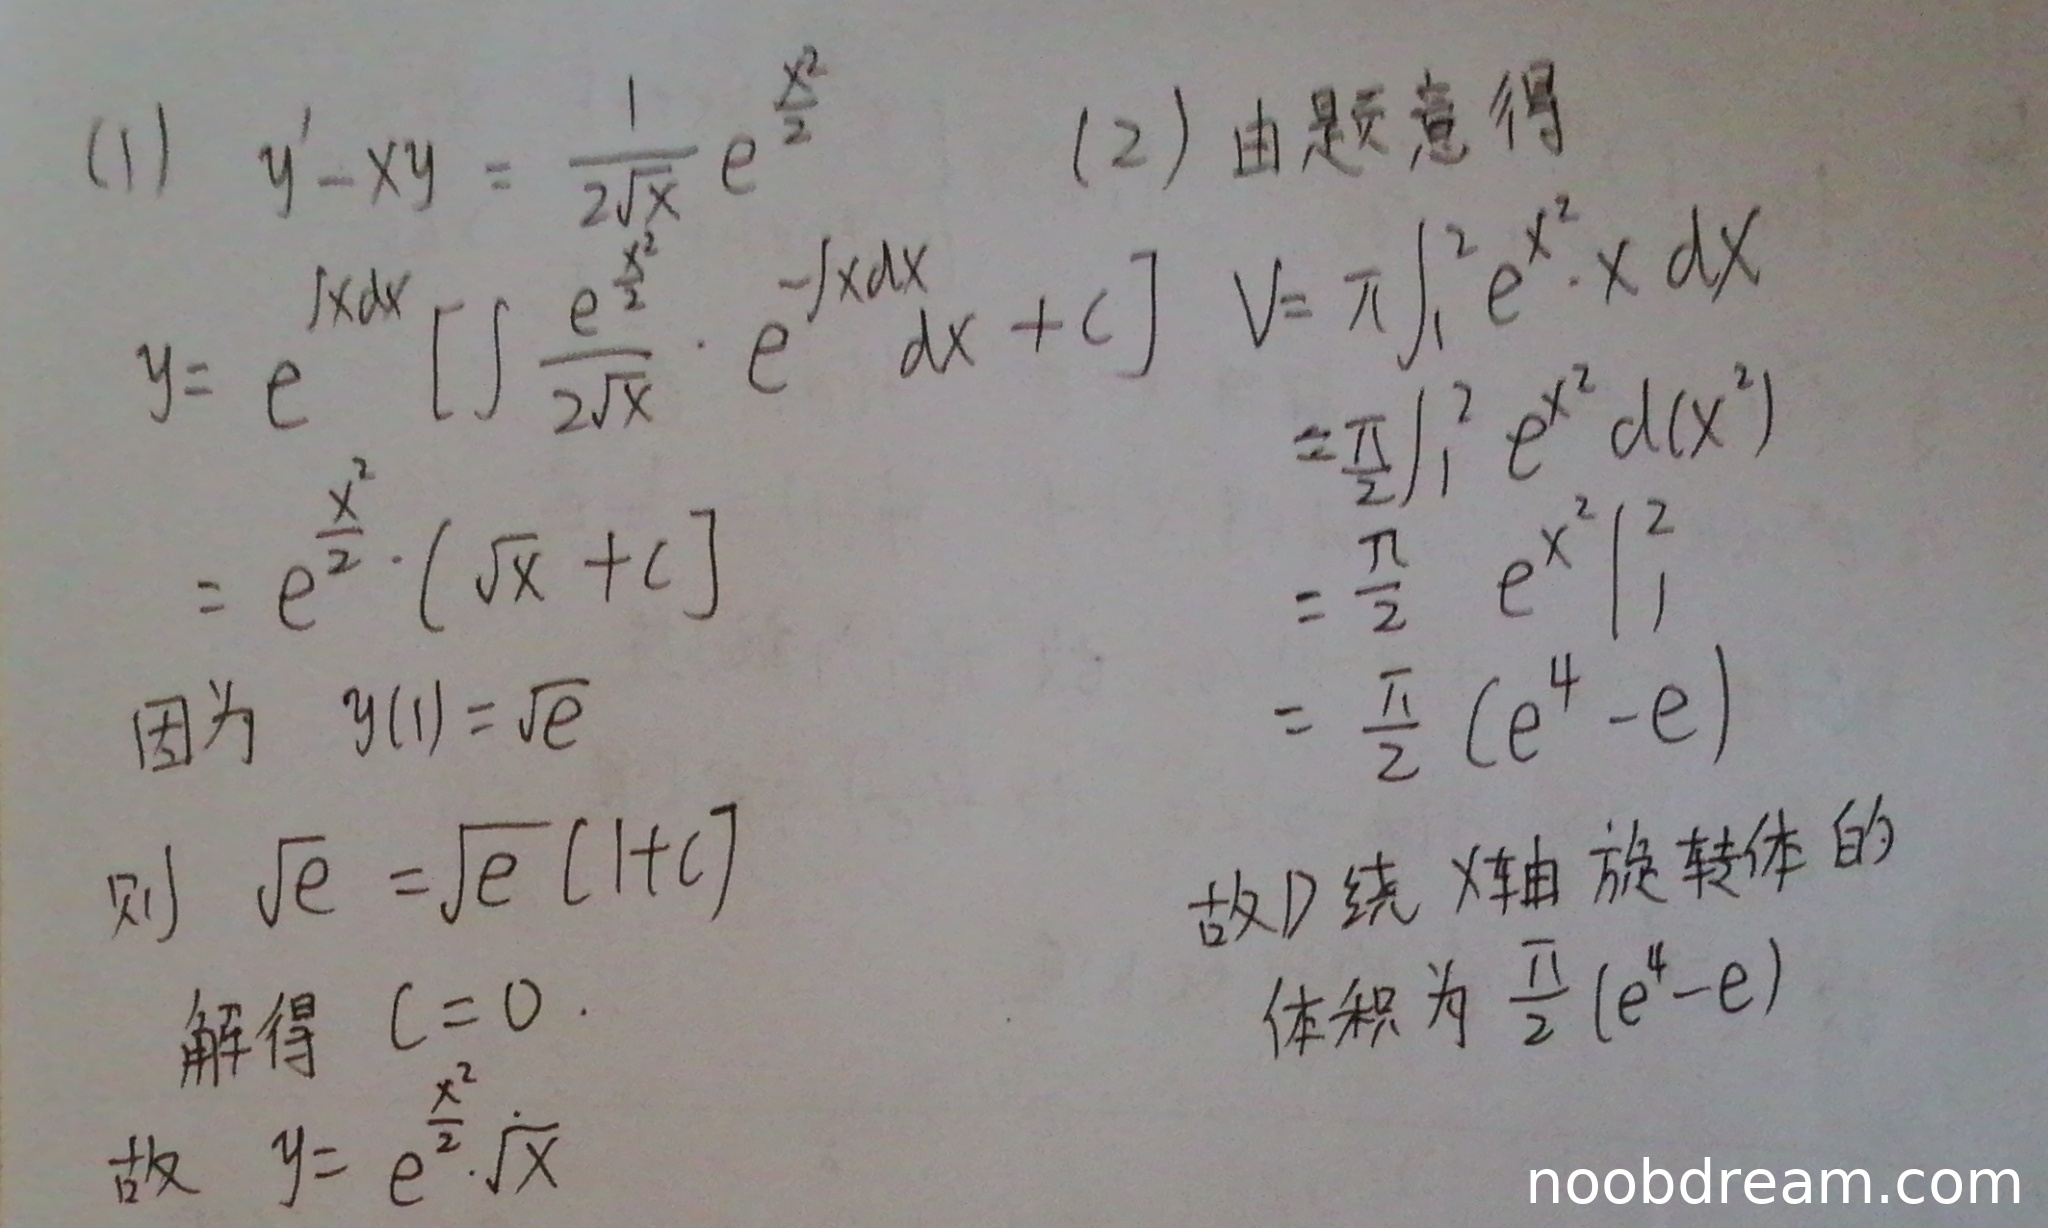 (1) y' - xy = \frac{1}{2\sqrt{x}} e^{\frac{x^2}{2}}
y = e^{\int x dx} [\int \frac{e^{\frac{x^2}{2}}}{2\sqrt{x}} \cdot e^{-\int x dx} dx + c]
= e^{\frac{x^2}{2}} \cdot (\sqrt{x} + c]
因为 y(1) = \sqrt{e}
则 \sqrt{e} = \sqrt{e} [1 + c]
解得 c = 0.
故 y = e^{\frac{x^2}{2}} \cdot \sqrt{x}
(2) 由题意得
V = π \int_1^2 e^{x^2} \cdot x dx
= \frac{π}{2} \int_1^2 e^{x^2} d(x^2)
= \frac{π}{2} e^{x^2} |_1^2
= \frac{π}{2} (e^4 - e)
故D绕 x轴 旋转体的
体积为 \frac{π}{2} (e^4 - e)
noobdream.com